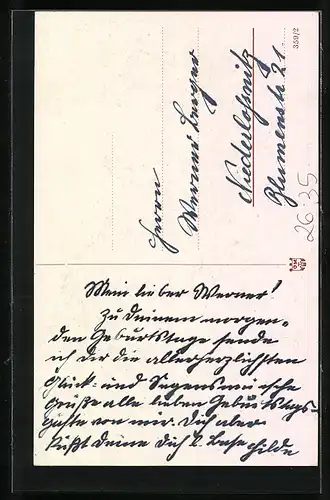 Mein lieber Werner!
Zu Deinem morgen-
den Geburtstage sende
ich dir die allerherzlichsten
Glück- und Segenswünsche
Grüße alle lieben Geburtstags-
gäste von mir. Dich aber
küßt Deine Dich l. Base Hilde
Herrn
Werner Berger
Niederlößnitz
Blumenstr. 21.
350/2
26 35